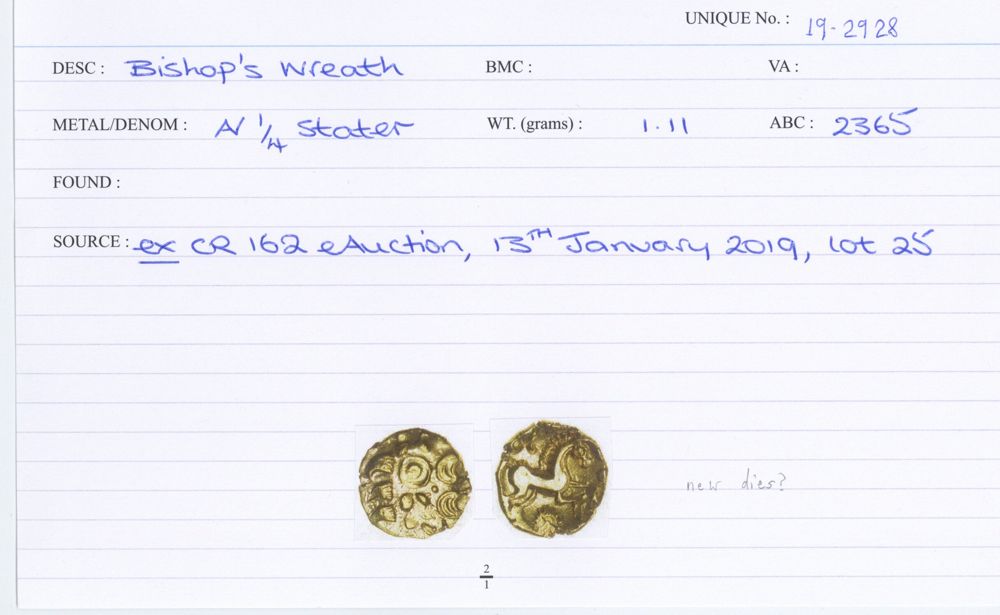 UNIQUE No. : 19-2928
DESC : Bishop's Wreath BMC : VA :
METAL/DENOM : AV 1/4 Stater WT. (grams) : 1.11 ABC : 2365
FOUND :
SOURCE : ex CR 162 eAuction, 13TH January 2019, lot 25
new dies?
2
1